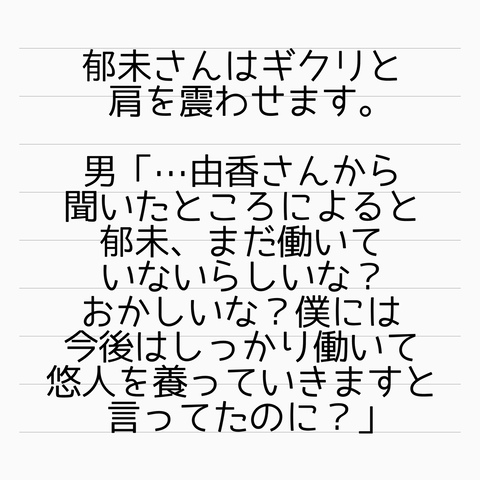 郁未さんはギクリと
肩を震わせます。
男「…由香さんから
聞いたところによると
郁未、まだ働いて
いないらしいな？
おかしいな？僕には
今後はしっかり働いて
悠人を養っていきますと
言ってたのに？」